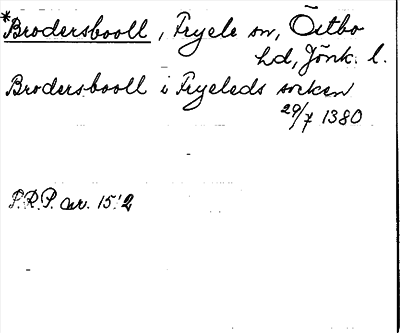 *Brodersbooll, Fryele sn, Östbo
hd, Jönk. l.
Brodersbooll i Fryeleds socken
29/7 1380
S.R.P. nr. 1512